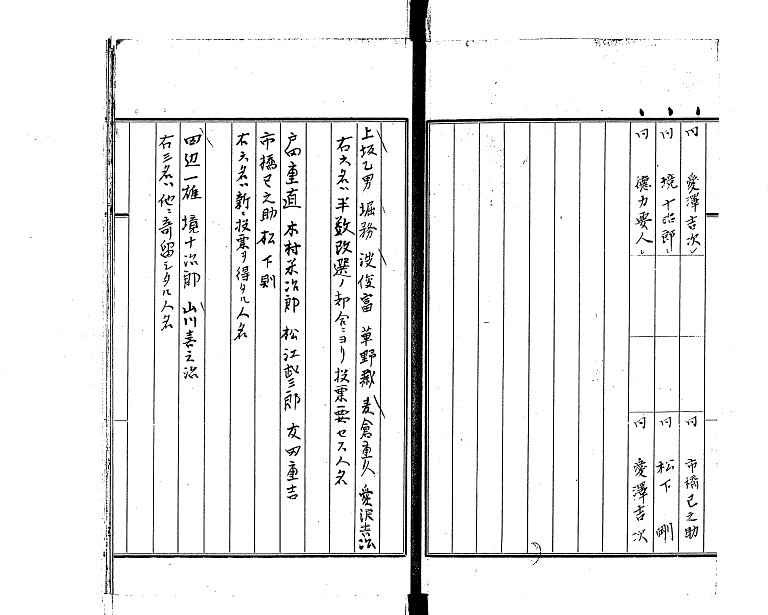 同 愛澤吉次
同 境十治郎
同 德力要人
同 市橋巳之助
同 松下剛
同 愛澤吉次
上坂乙男 堀務 渡俊富 草野 麦倉重久 愛沢吉治
右六名ハ半数改選ノ都合ニヨリ投票要セス人名
戸田重直 木村米治郎 松江 三郎 友田重吉
市橋巳之助 松下則
右六名ハ新ニ投票ヲ得タル人名
田辺一雄 境十治郎 山川喜之治
右三名ハ他ニ寄留シタル人名